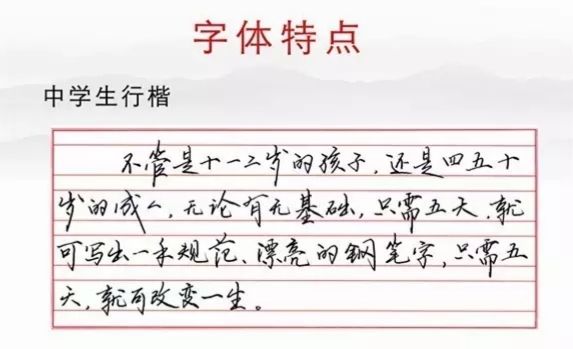 字体特点
中学生行楷
不管是十一二岁的孩子,还是四五十
岁的成人,无论有无基础,只需五天,就
可写出一手规范、漂亮的钢笔字,只需五
天,就可改变一生。